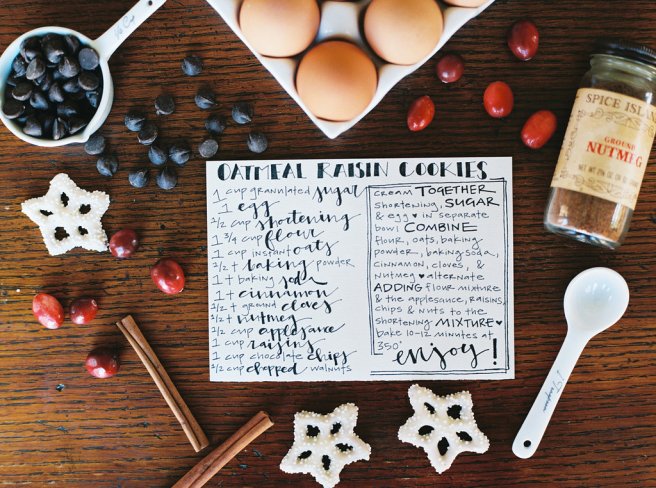 OATMEAL RAISIN COOKIES
1 CUP granulated sugar
1 egg
1/2 cup shortening
1 3/4 cup flour
1 cup instant oats
1/2 t baking powder
1 t baking soda
1 t cinnamon
1/2 t ground cloves
1/2 t nutmeg
1/2 cup applesauce
1 cup raisins
1 cup chocolate chips
1/2 cup chopped walnuts
cream TOGETHER
shortening, SUGAR
& egg ♥ in separate
bowl COMBINE
flour, oats, baking
powder, baking soda,
cinnamon, cloves, &
nutmeg ♥ alternate
ADDING flour mixture
& the applesauce, raisins,
chips & nuts to the
shortening MIXTURE ♥
bake 10-12 minutes at
350°
enjoy!
SPICE ISLAND
GROUND
NUTMEG